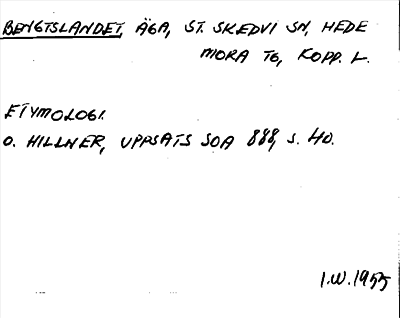 BENGTSLANDET, ÄGA, ST. SKEDVI SN, HEDE
MORA TG, KOPP. L.
ETYMOLOGI.
O. HILLNER, UPPSATS SOA 888, S. 40.
I.W. 1955